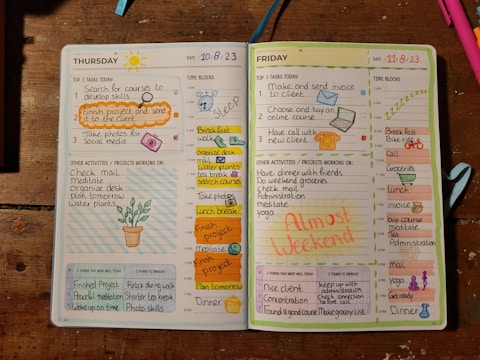 THURSDAY
DATE: 10.8.23
TOP 3 TASKS TODAY
1 Search for courses to
develop skills
2 Finish project and send
it to the client
3 Take photos for
Social media
OTHER ACTIVITIES / PROJECTS WORKING ON:
Check mail
meditate
Organize desk
plan tomorrow
Water plants
3 THINGS THAT WENT WELL TODAY
Finished Project
Peaceful meditation
Woke up on time
Relax during walk
Shorter tea break
Photo skills
TIME BLOCKS
Sleep
Break fast
walk
Organize desk
mail
Water plants
tea break
Search courses
Take photos
Lunch break
Finish
Project
Meditate
Finish
Project
Plan tomorrow
Dinner
FRIDAY
DATE: 11.8.23
TOP 3 TASKS TODAY
1 Make and send invoice
to client
2 Choose and buy an
online course
3 Have call with
new client
OTHER ACTIVITIES / PROJECTS WORKING ON:
Have dinner with friends
Do weekend groceries
check mail
Administration
meditate
yoga
Almost
Weekend
3 THINGS THAT WENT WELL TODAY
Nice client
Concentration
Found a good course
keep up with
administration
Check connection
before call
Make grocery list
TIME BLOCKS
zzzzzzzz
Break fast
Bike ride
Call
Groceries
Lunch
invoice
buy course
meditate
Tea
Administration
Mail
yoga
Get ready
Dinner